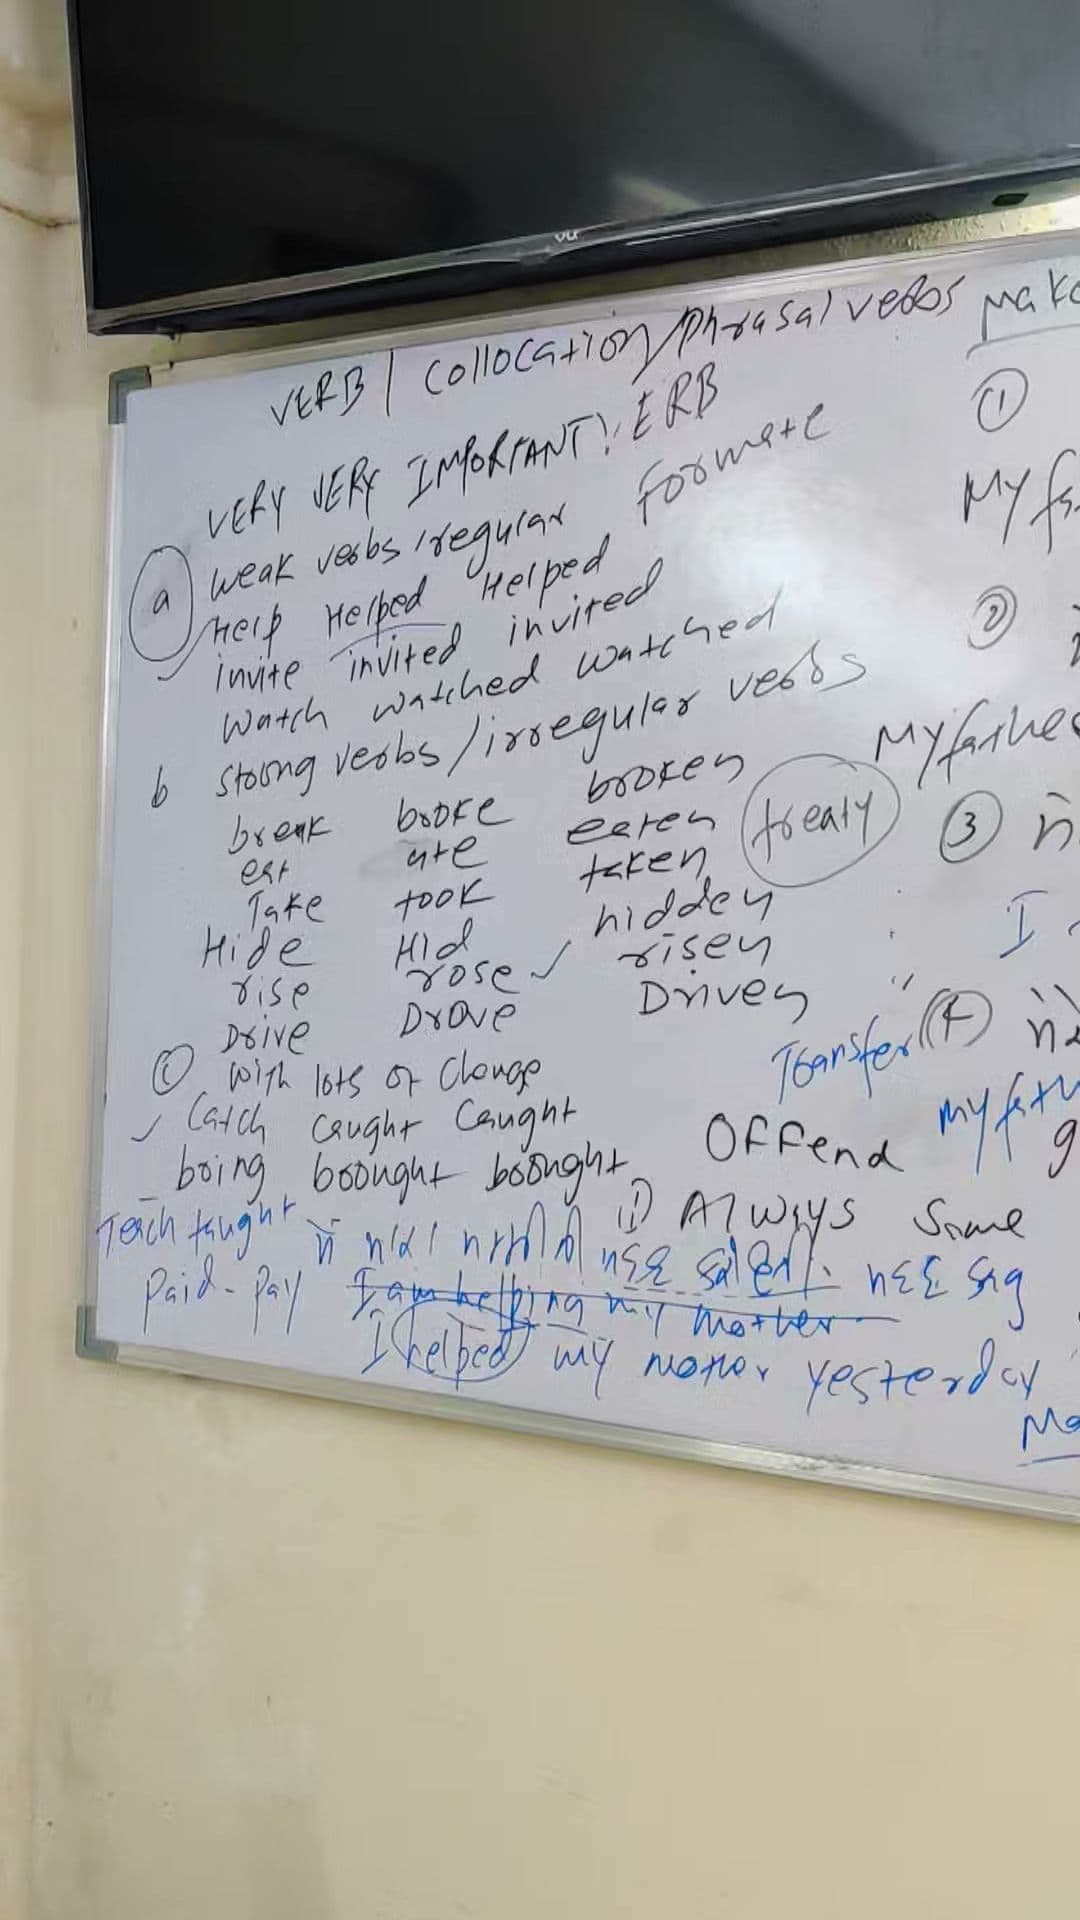 VU
VERB / Collocation/Phrasal verbs Make
VERY VERY IMPORTANT VERB
a weak verbs /regular Formate
Help Helped Helped
invite invited invited
Watch watched watched
b strong verbs /irregular verbs
break broke broken
eat ate eaten treaty
Take took taken
Hide Hid hidden
rise rose risen
Drive Drove Driven
c With lots of Change
Catch caught caught
bring brought brought
Teach taught
Paid - Pay
1
My fa
2
My father
3
I
Transfer
4
My fath
Offend
1) Always Same
I am helping my mother
I helped my mother yesterday